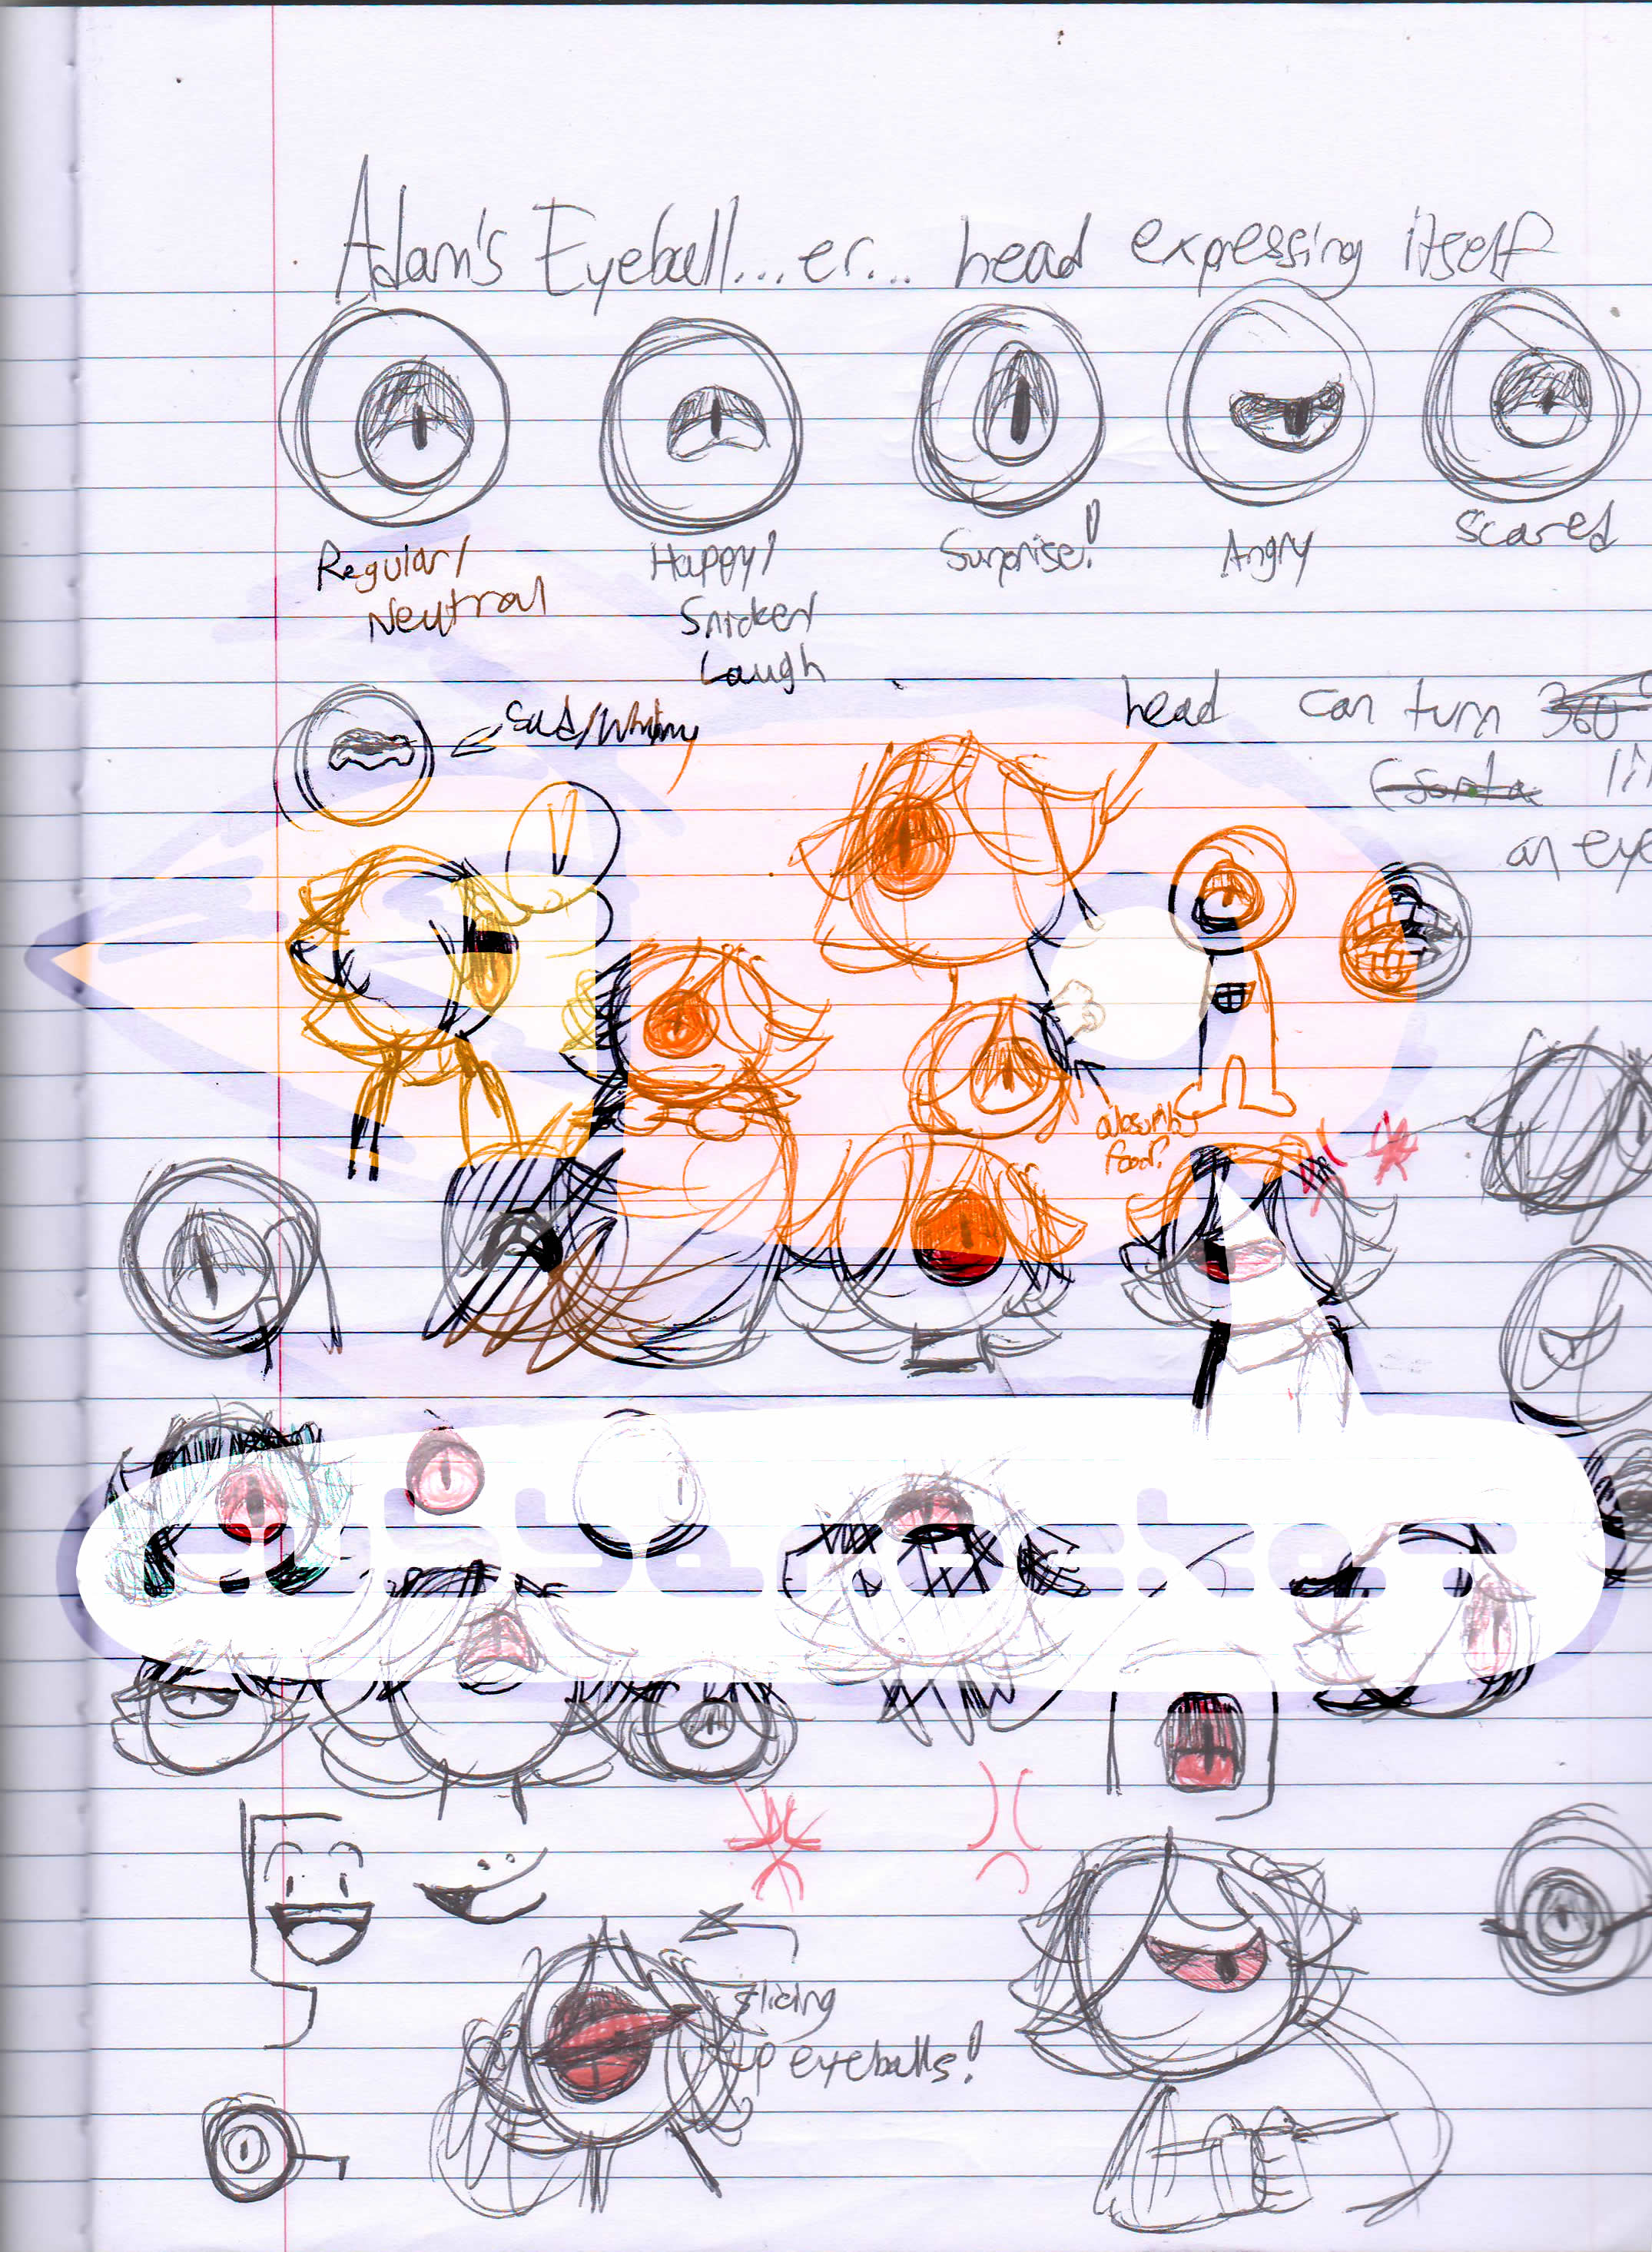 Adam's Eyeball...er... head expressing itself
Regular/
Neutral
Happy/
Snicker/
Laugh
Surprise!
Angry
Scared
Sad/Whiny
head can turn 360°
(sorta
an eye
absorbs
food?
slicing
up eyeballs!